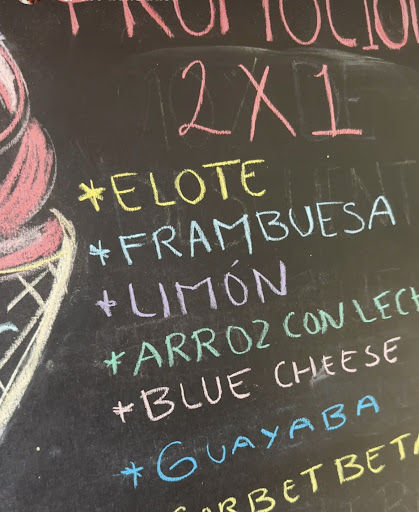 PROMOCIO
2 X 1
*ELOTE
*FRAMBUESA
*LIMÓN
*ARROZ CON LECH
*BLUE CHEESE
*GUAYABA
SORBET BETA